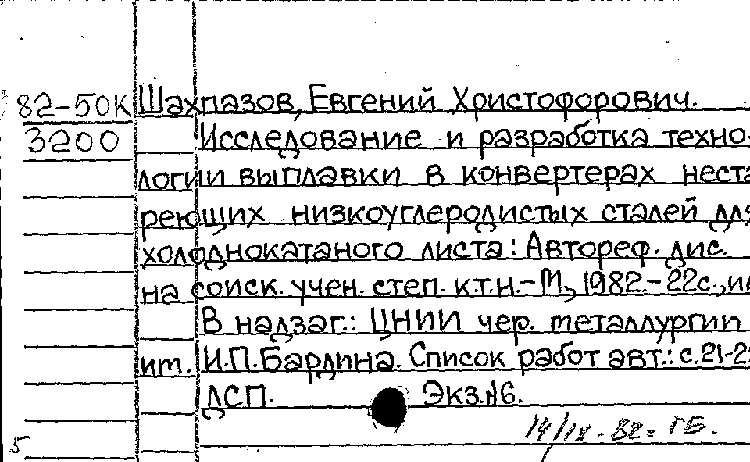 82-50К Шахпазов, Евгений Христофорович.
3200 Исследование и разработка техно-
логии выплавки в конвертерах неста
реющих низкоуглеродистых сталей для
холоднокатаного листа: Автореф. дис.
на соиск. учен. степ. к.т.н.-М., 1982.-22с.,ил
В надзаг.: ЦНИИ чер. металлургии
им. И.П.Бардина. Список работ авт.: с.21-2
ДСП. Экз.№6.
14/IX-82г ГБ.
5